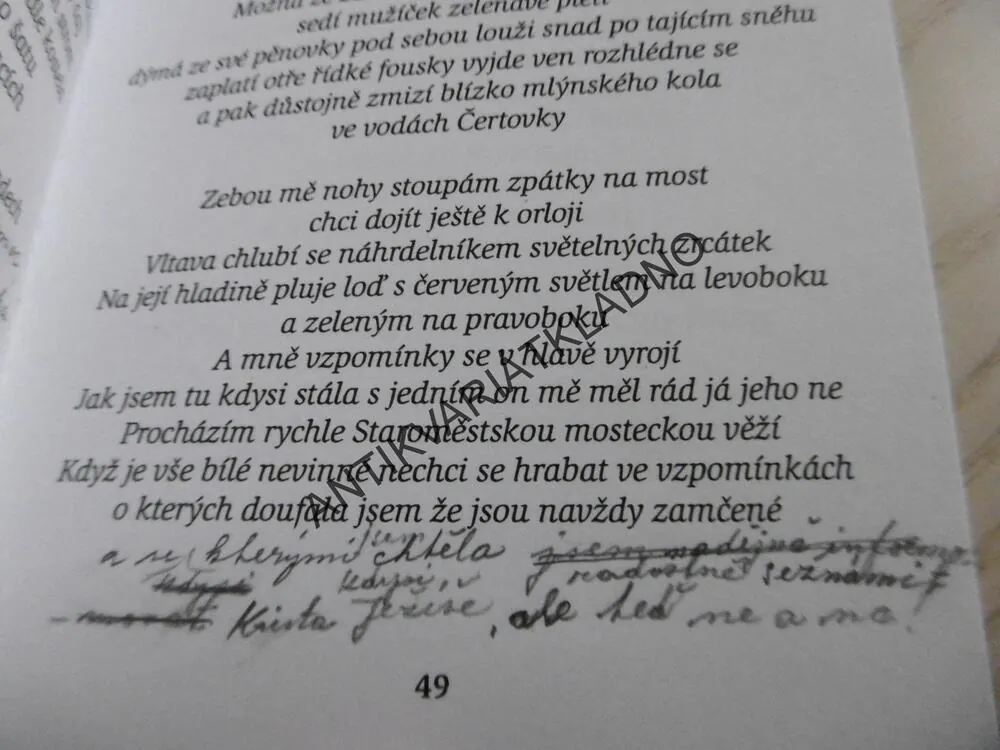 Možná že
sedí mužíček zelenavé pleti
dýmá ze své pěnovky pod sebou louži snad po tajícím sněhu
zaplatí otře řídké fousky vyjde ven rozhlédne se
a pak důstojně zmizí blízko mlýnského kola
ve vodách Čertovky
Zebou mě nohy stoupám zpátky na most
chci dojít ještě k orloji
Vltava chlubí se náhrdelníkem světelných zrcátek
Na její hladině pluje loď s červeným světlem na levoboku
a zeleným na pravoboku
A mně vzpomínky se v hlavě vyrojí
Jak jsem tu kdysi stála s jedním on mě měl rád já jeho ne
Procházím rychle Staroměstskou mosteckou věží
Když je vše bílé nevinné nechci se hrabat ve vzpomínkách
o kterých doufala jsem že jsou navždy zamčené
a kterými jsem chtěla
kdysi radostně seznámit
Krista Ježíše, ale teď ne a ne!
49
ANTIKVARIATKLADNO